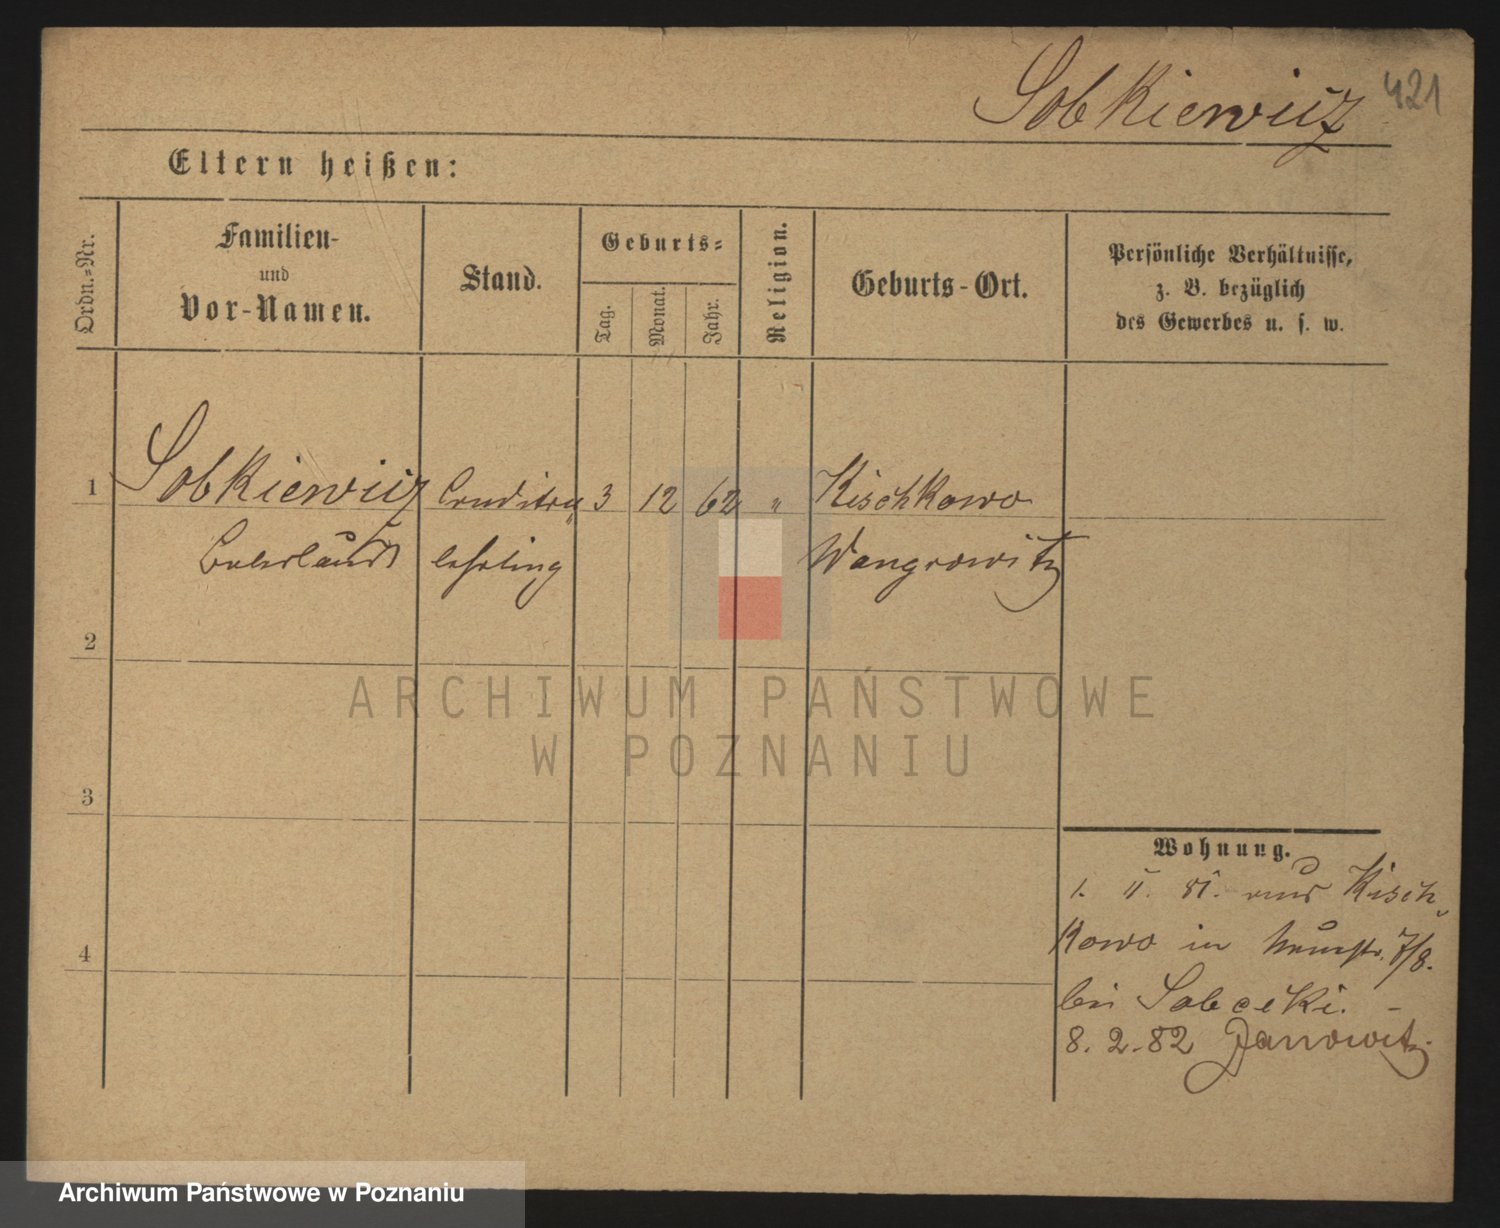 Sobkiewicz 421
Eltern heißen:
Ordn.-Nr.
Familien-
und
Vor-Namen.
Stand.
Geburts-
Tag.
Monat.
Jahr.
Religion.
Geburts-Ort.
Persönliche Verhältnisse,
z. B. bezüglich
des Gewerbes u. s. w.
1 Sobkiewicz Conditor 3 12 62 " Kischkowo
lehrling Wongrowitz
2
ARCHIWUM PAŃSTWOWE
W POZNANIU
3
Wohnung.
1. II. 81. aus Kisch
kowo in 7/8.
4
bei Sobecki. -
8. 2. 82 Janowitz
Archiwum Państwowe w Poznaniu